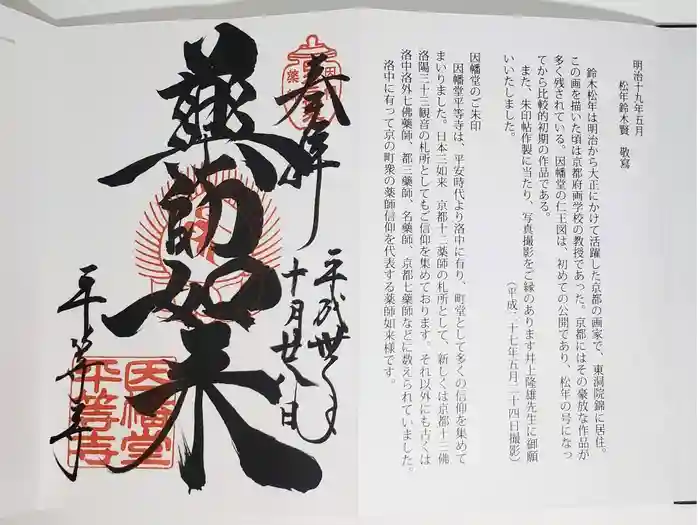 明治十九年五月
松年鈴木賢 敬寫
鈴木松年は明治から大正にかけて活躍した京都の画家で、東洞院錦に居住。
この画を描いた頃は京都府画学校の教授であった。京都にはその豪放な作品が
多く残されている。因幡堂の仁王図は、初めての公開であり、松年の号になっ
てから比較的初期の作品である。
また、朱印帖作製に当たり、写真撮影をご縁のあります井上隆雄先生に御願
いいたしました。
(平成二十七年五月二十四日撮影)
因幡堂のご朱印
因幡堂平等寺は、平安時代より洛中に有り、町堂として多くの信仰を集めて
まいりました。日本三如来 京都十二薬師の札所として、新しくは京都十三佛
洛陽三十三観音の札所としてもご信仰を集めております。それ以外にも古くは
洛中洛外七佛薬師、都三薬師、名薬師、京都七薬師などに数えられていました。
洛中に有って京の町衆の薬師信仰を代表する薬師如来様です。
奉拝
平成卅年
十月廿八日
薬師如来
平等寺
因幡堂
平等寺